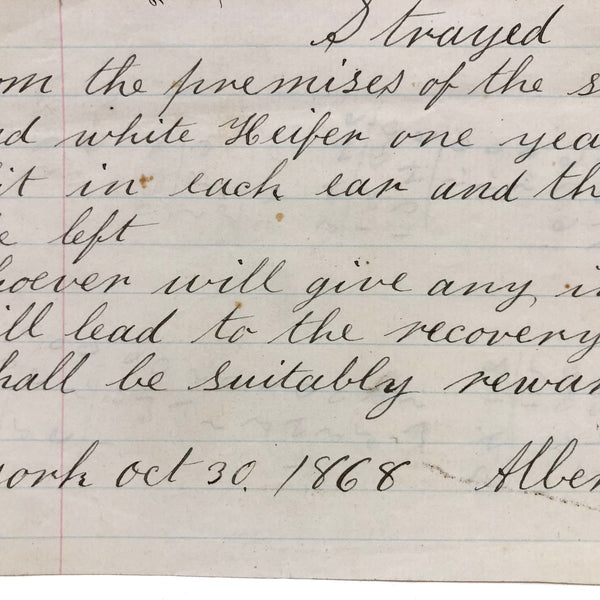 Strayed
om the premises of the s
d white Heifer one yea
it in each ear and th
e left
hoever will give any in
ill lead to the recovery
hall be suitably rewar
york oct 30. 1868 Alber